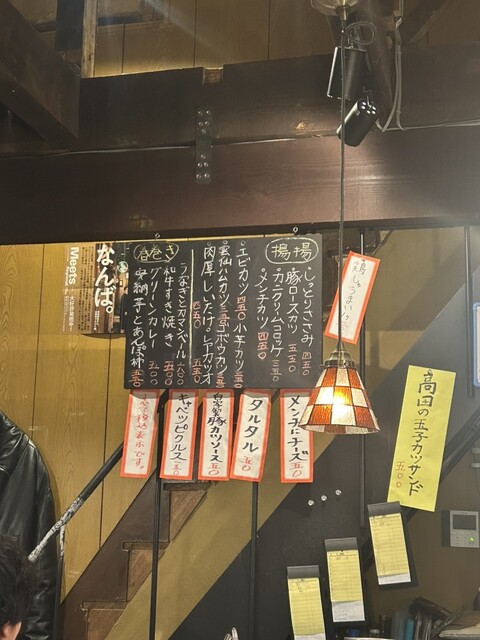 揚揚
しっとりささみ 四五〇
豚ロースカツ 五五〇
カニクリームコロッケ 三五〇
メンチカツ 四五〇
エビカツ 四五〇 小芋カツ 三五〇
雲仙ハムカツ 三五〇 ゴボウカツ 三五〇
肉厚しいたけ 四五〇 レアカツオ 五五〇
春巻き
うなぎとカマンベール 六〇〇
和牛すき焼き 五〇〇
グリーンカレー 五〇〇
安納芋とあんぽ柿
メンチにチーズ 五〇
タルタル 五〇
自家製豚カツソース 五〇
キャベツピクルス 一五〇
すべて税込表示です。
高田の玉子カツサンド 五〇〇
なんば。
Meets